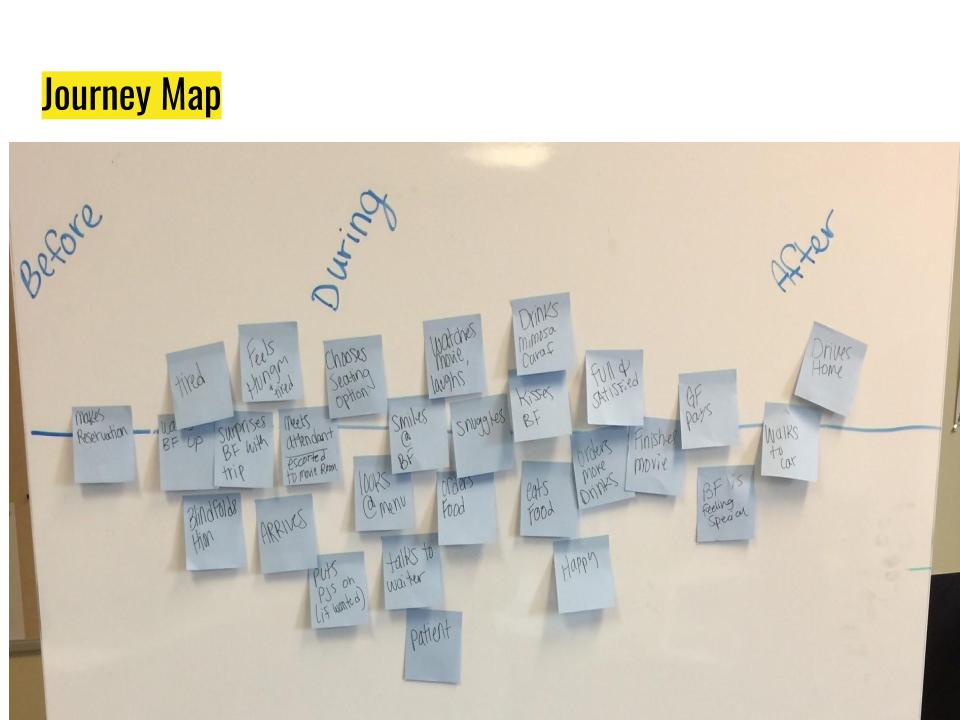 Journey Map
Before
During
After
makes
Reservation
BF
up
tired
Feels
Hungry
tired
Surprises
BF with
trip
Blindfolds
Him
ARRIVES
Meets
attendant
escorted
to movie Room
Chooses
Seating
option
puts
PJs on
(if wanted)
Looks
@ menu
Smiles
@
BF
talks to
waiter
patient
Watches
movie,
laughs
snuggles
orders
Food
Drinks
mimosa
Caraf
Kisses
BF
eats
FOOD
Happy
orders
more
Drinks
Full &
SATISFIED
Finishes
movie
GF
pays
BF is
feeling
Special
Walks
to
car
Drives
Home